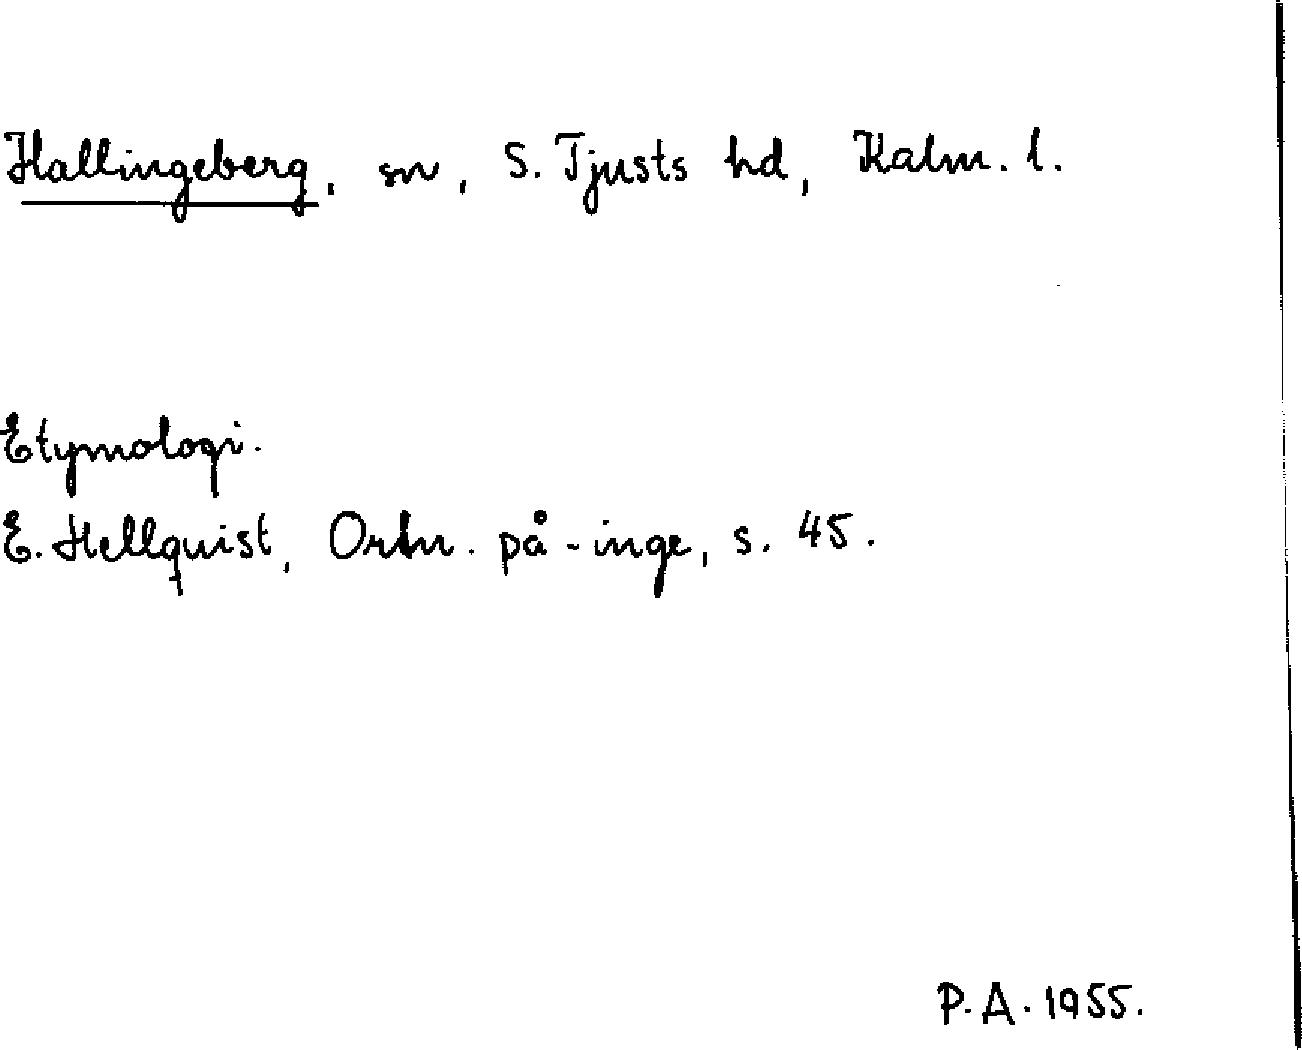 Hallingeberg, sn, S. Tjusts hd, Kalm. l.
Etymologi.
E. Hellquist, Ortn. på -inge, s. 45.
P. A. 1955.